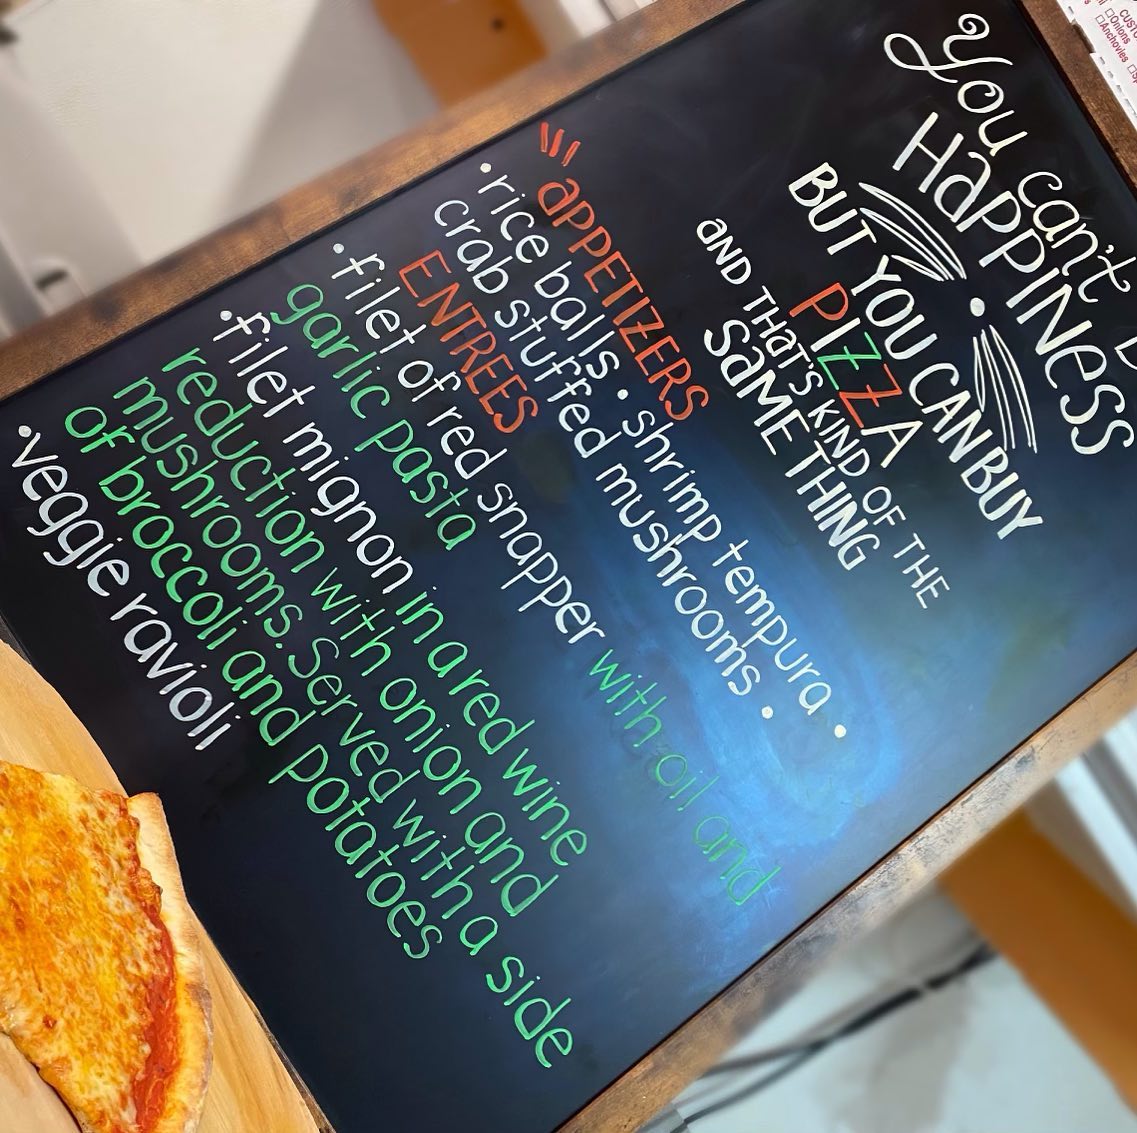 You can't
HAPPINESS
BUT YOU CAN BUY
PIZZA
AND THAT'S KIND OF THE
SAME THING
APPETIZERS
• rice balls • shrimp tempura •
crab stuffed mushrooms •
ENTREES
• filet of red snapper with oil and
garlic pasta
• filet mignon in a red wine
reduction with onion and
mushrooms. Served with a side
of broccoli and potatoes
• veggie ravioli
Onions
Anchovies